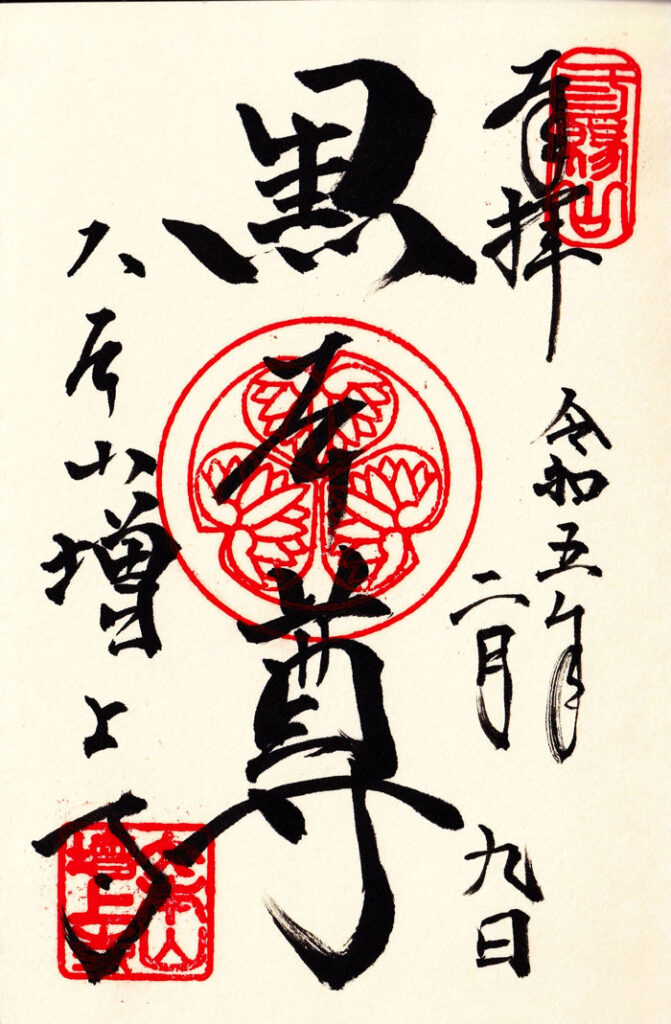 奉拝
三縁山
令和五年
二月
九日
黒本尊
大本山増上寺
大本山
増上寺